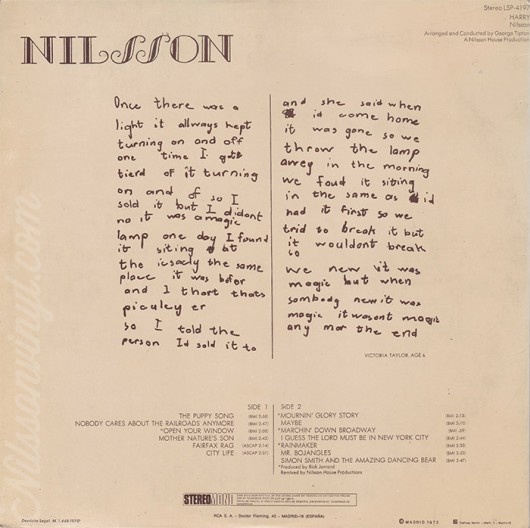 Stereo LSP-4197
HARRY
Nilsson
Arranged and Conducted by George Tipton
A Nilsson House Production
NILSSON
Once there was a
light it allways kept
turning on and off
one time I gott
tierd of it turning
on and of so I
sold it but I didont
no it was a magic
lamp one day I found
it siting
the icsacly the same
place it was befor
and I thort thats
piculey er
so I told the
person Id sold it to
and she said when
id come home
it was gone so we
throw the lamp
awey in the morning
we foud it siting
in the same as id
had it first so we
trid to break it but
it wouldont break
so
we new it was
magic but when
sombody new it was
magic it wasont magic
any mor the end
VICTORIA TAYLOR, AGE 6
SIDE 1
THE PUPPY SONG
NOBODY CARES ABOUT THE RAILROADS ANYMORE
*OPEN YOUR WINDOW
MOTHER NATURE'S SON
FAIRFAX RAG
CITY LIFE
SIDE 2
*MOURNIN' GLORY STORY
MAYBE
*MARCHIN' DOWN BROADWAY
I GUESS THE LORD MUST BE IN NEW YORK CITY
*RAINMAKER
MR. BOJANGLES
SIMON SMITH AND THE AMAZING DANCING BEAR
*Produced by Rick Jarrard
Remixed by Nilsson House Productions
STEREO MONO
RCA S. A. - Doctor Fleming, 43 - MADRID-16 (ESPAÑA)